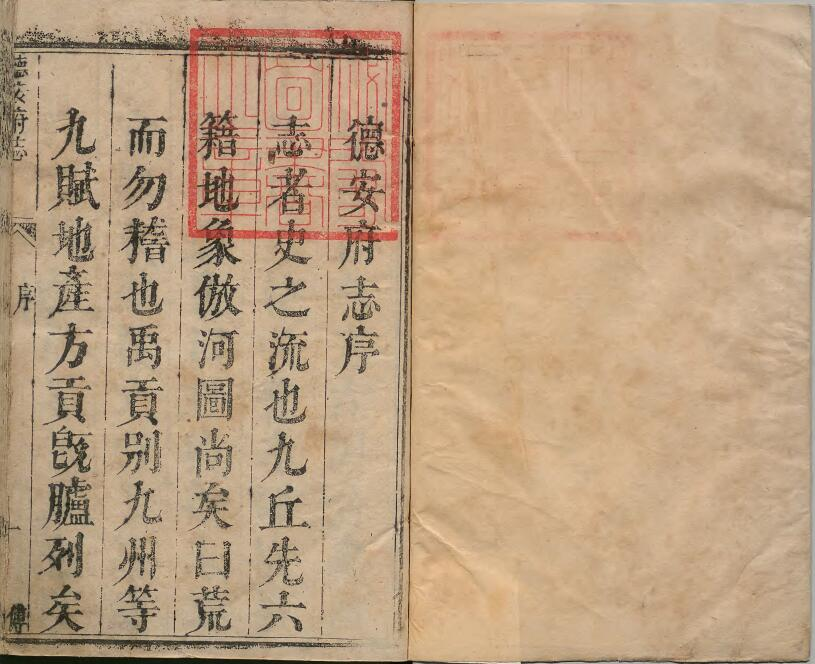 德安府志序
志者史之流也九丘先六
籍地象倣河圖尚矣曰荒
而勿稽也禹貢別九州等
九賦地產方貢既臚列矣
德安府志
序
一
傅